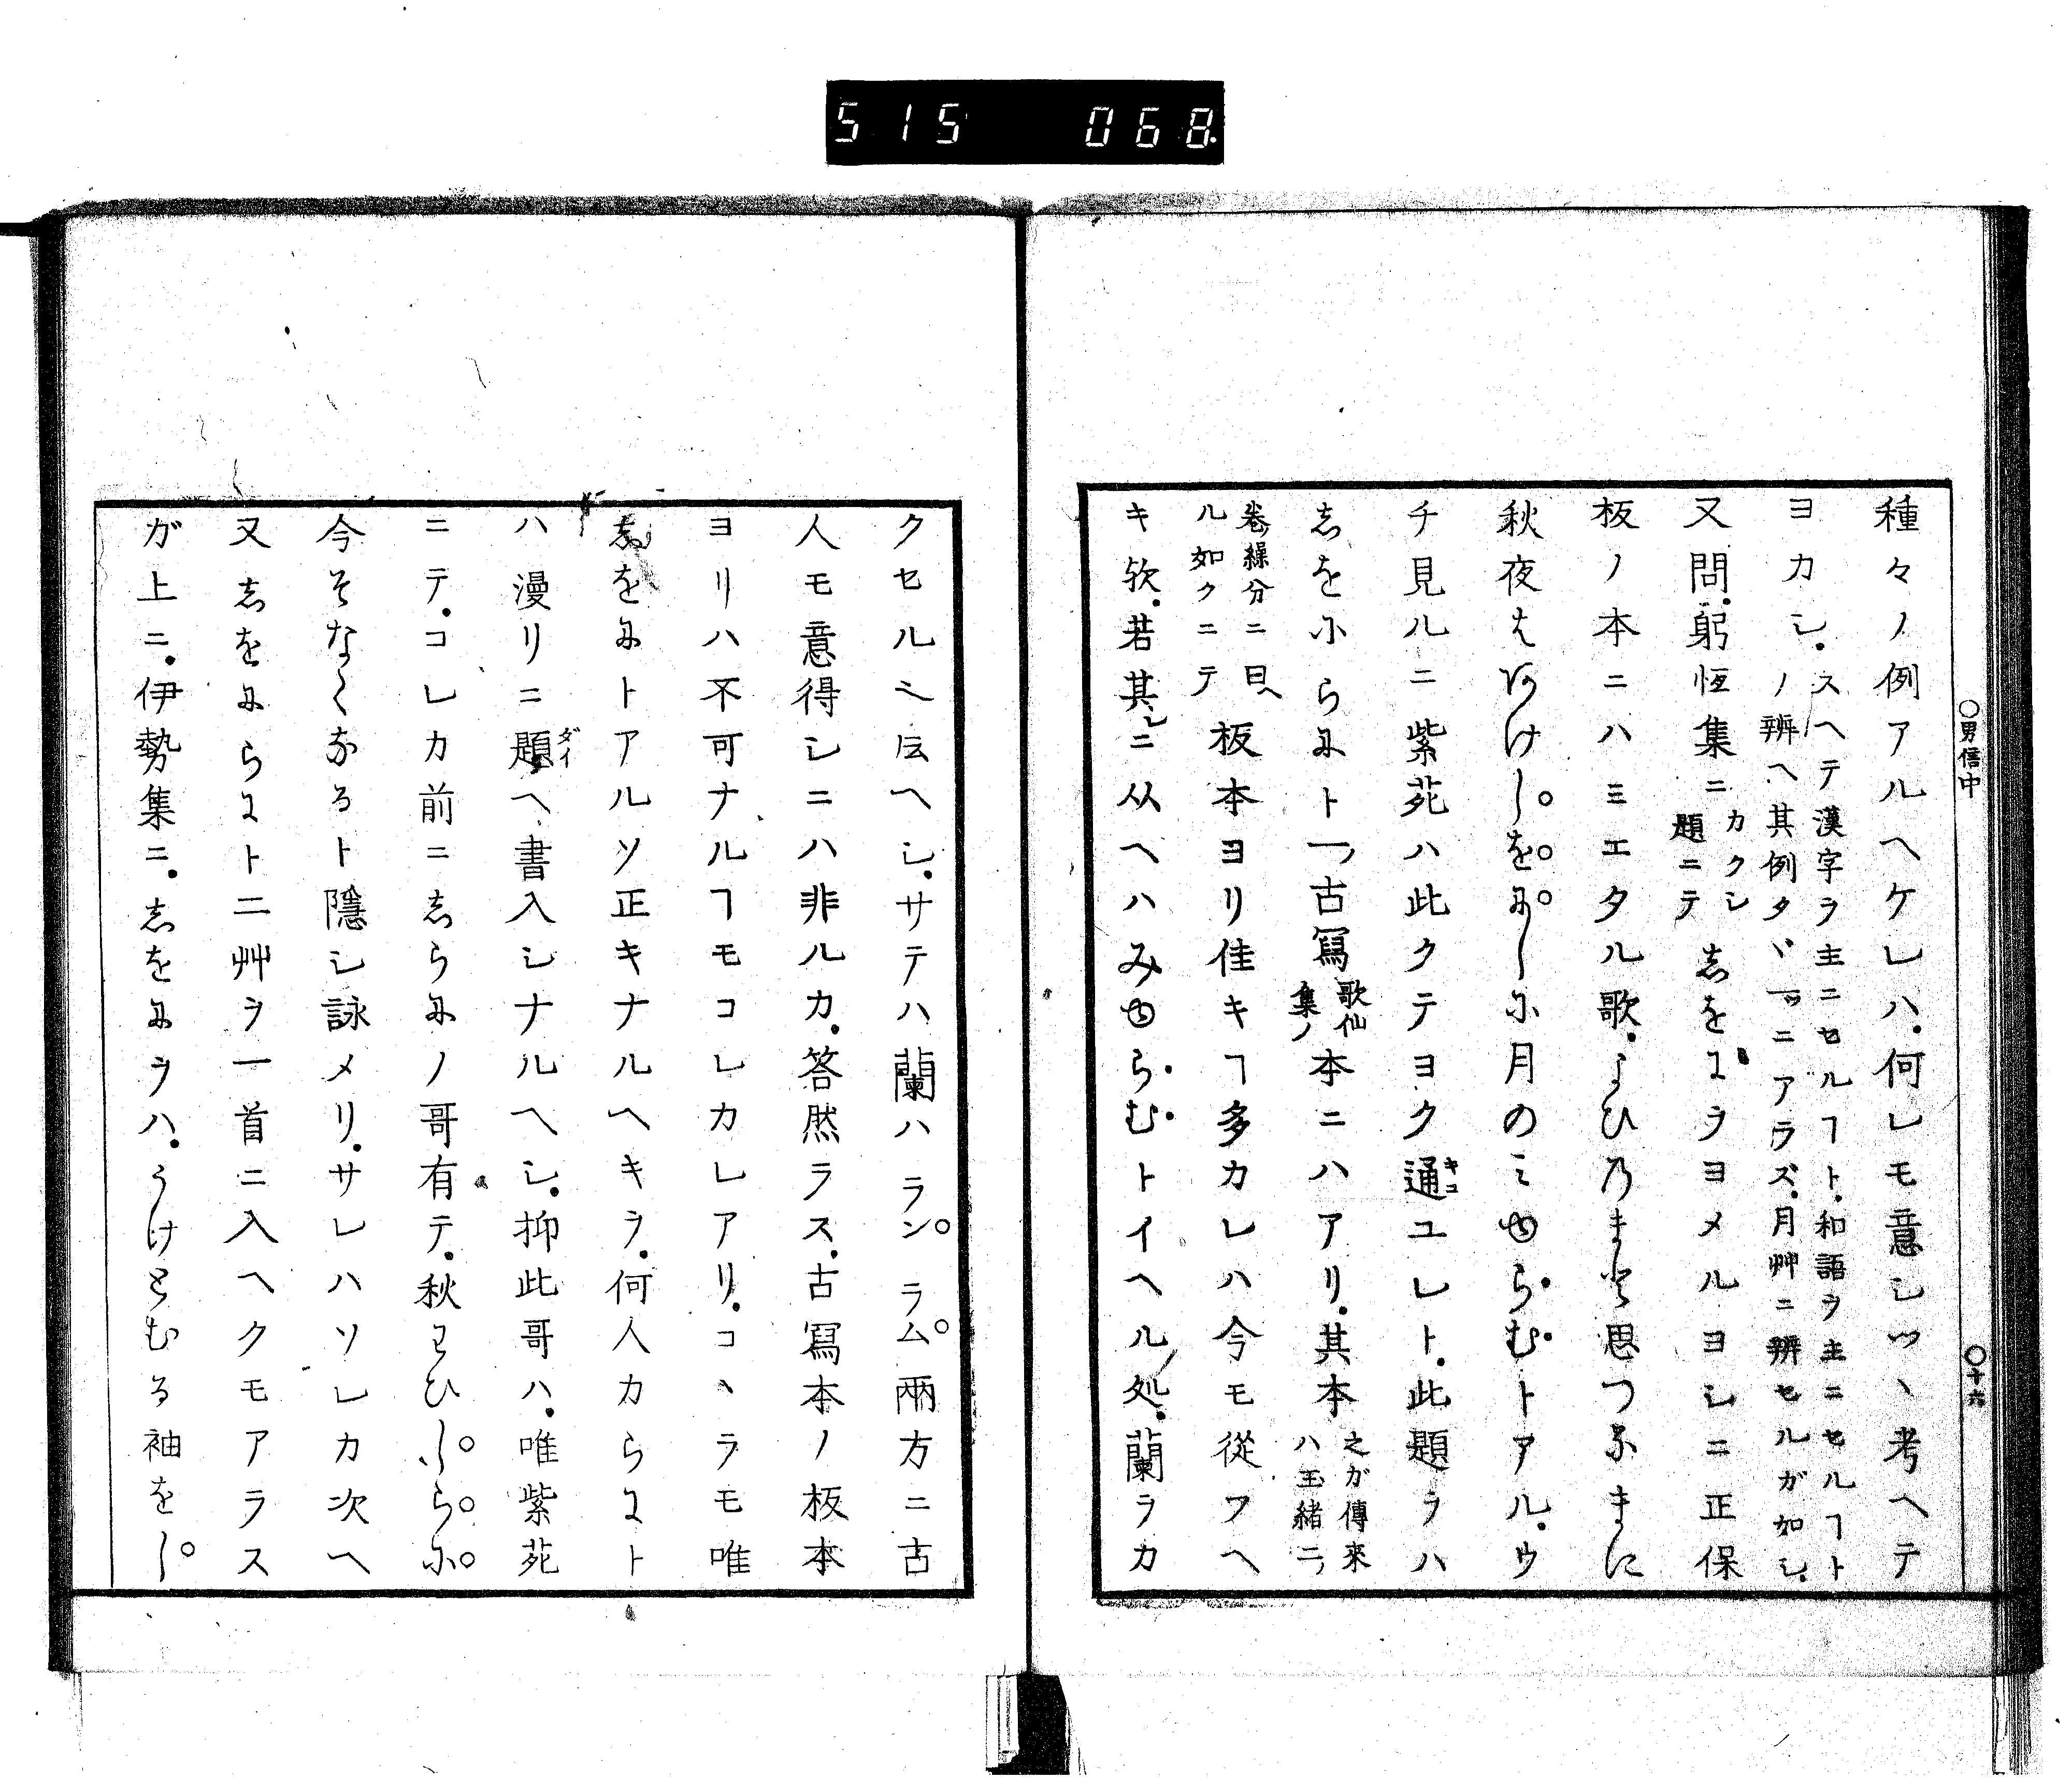 515 068
種々ノ例アルヘケレハ.何レモ意シツヽ考ヘテ
ヨカシ.スヘテ漢字ヲ主ニセルヿト.和語ヲ主ニセルヿト
ノ辨ヘ其例タヾ一ツニアラズ.月艸ニ辨セルガ如シ.
又問.躬恒集ニカクシ題ニテしをにヲヨメルヨシニ正保
板ノ本ニハミエタル歌.よひ乃まと思つるまに
秋夜はあけしをにしに月のみやらむトアル.ウ
チ見ルニ紫苑ハ此クテヨク通キコユレト.此題ヲハ
しをにらにト一ツ古寫歌仙集ノ本ニハアリ.其本之が傳來ハ玉緒ニ
卷繰分ニ曰ヘル如クニテ板本ヨリ佳キヿ多カレハ今モ從フヘ
キ欤.若其レニ从ヘハみやらむトイヘル処.蘭ラカ
○男信中
○十六
クセル〻云ヘシ.サテハ蘭ハランラム兩方ニ古
人モ意得シニハ非ルカ.答然ラス.古寫本ノ板本
ヨリハ不可ナルヿモコレカレアリ.コヽラモ唯
しをにトアルソ正キナルヘキヲ.何人カらにト
ハ漫リニ題ダイヘ書入シナルヘシ.抑此哥ハ.唯紫苑
ニテ.コレカ前ニしらにノ哥有テ.秋こひしらに
今そなくなるト隱シ詠メリ.サレハソレカ次ヘ
又しをにらにト二艸ヲ一首ニ入ヘクモアラス
が上ニ.伊勢集ニ.しをにヲハ.うけとむる袖をし